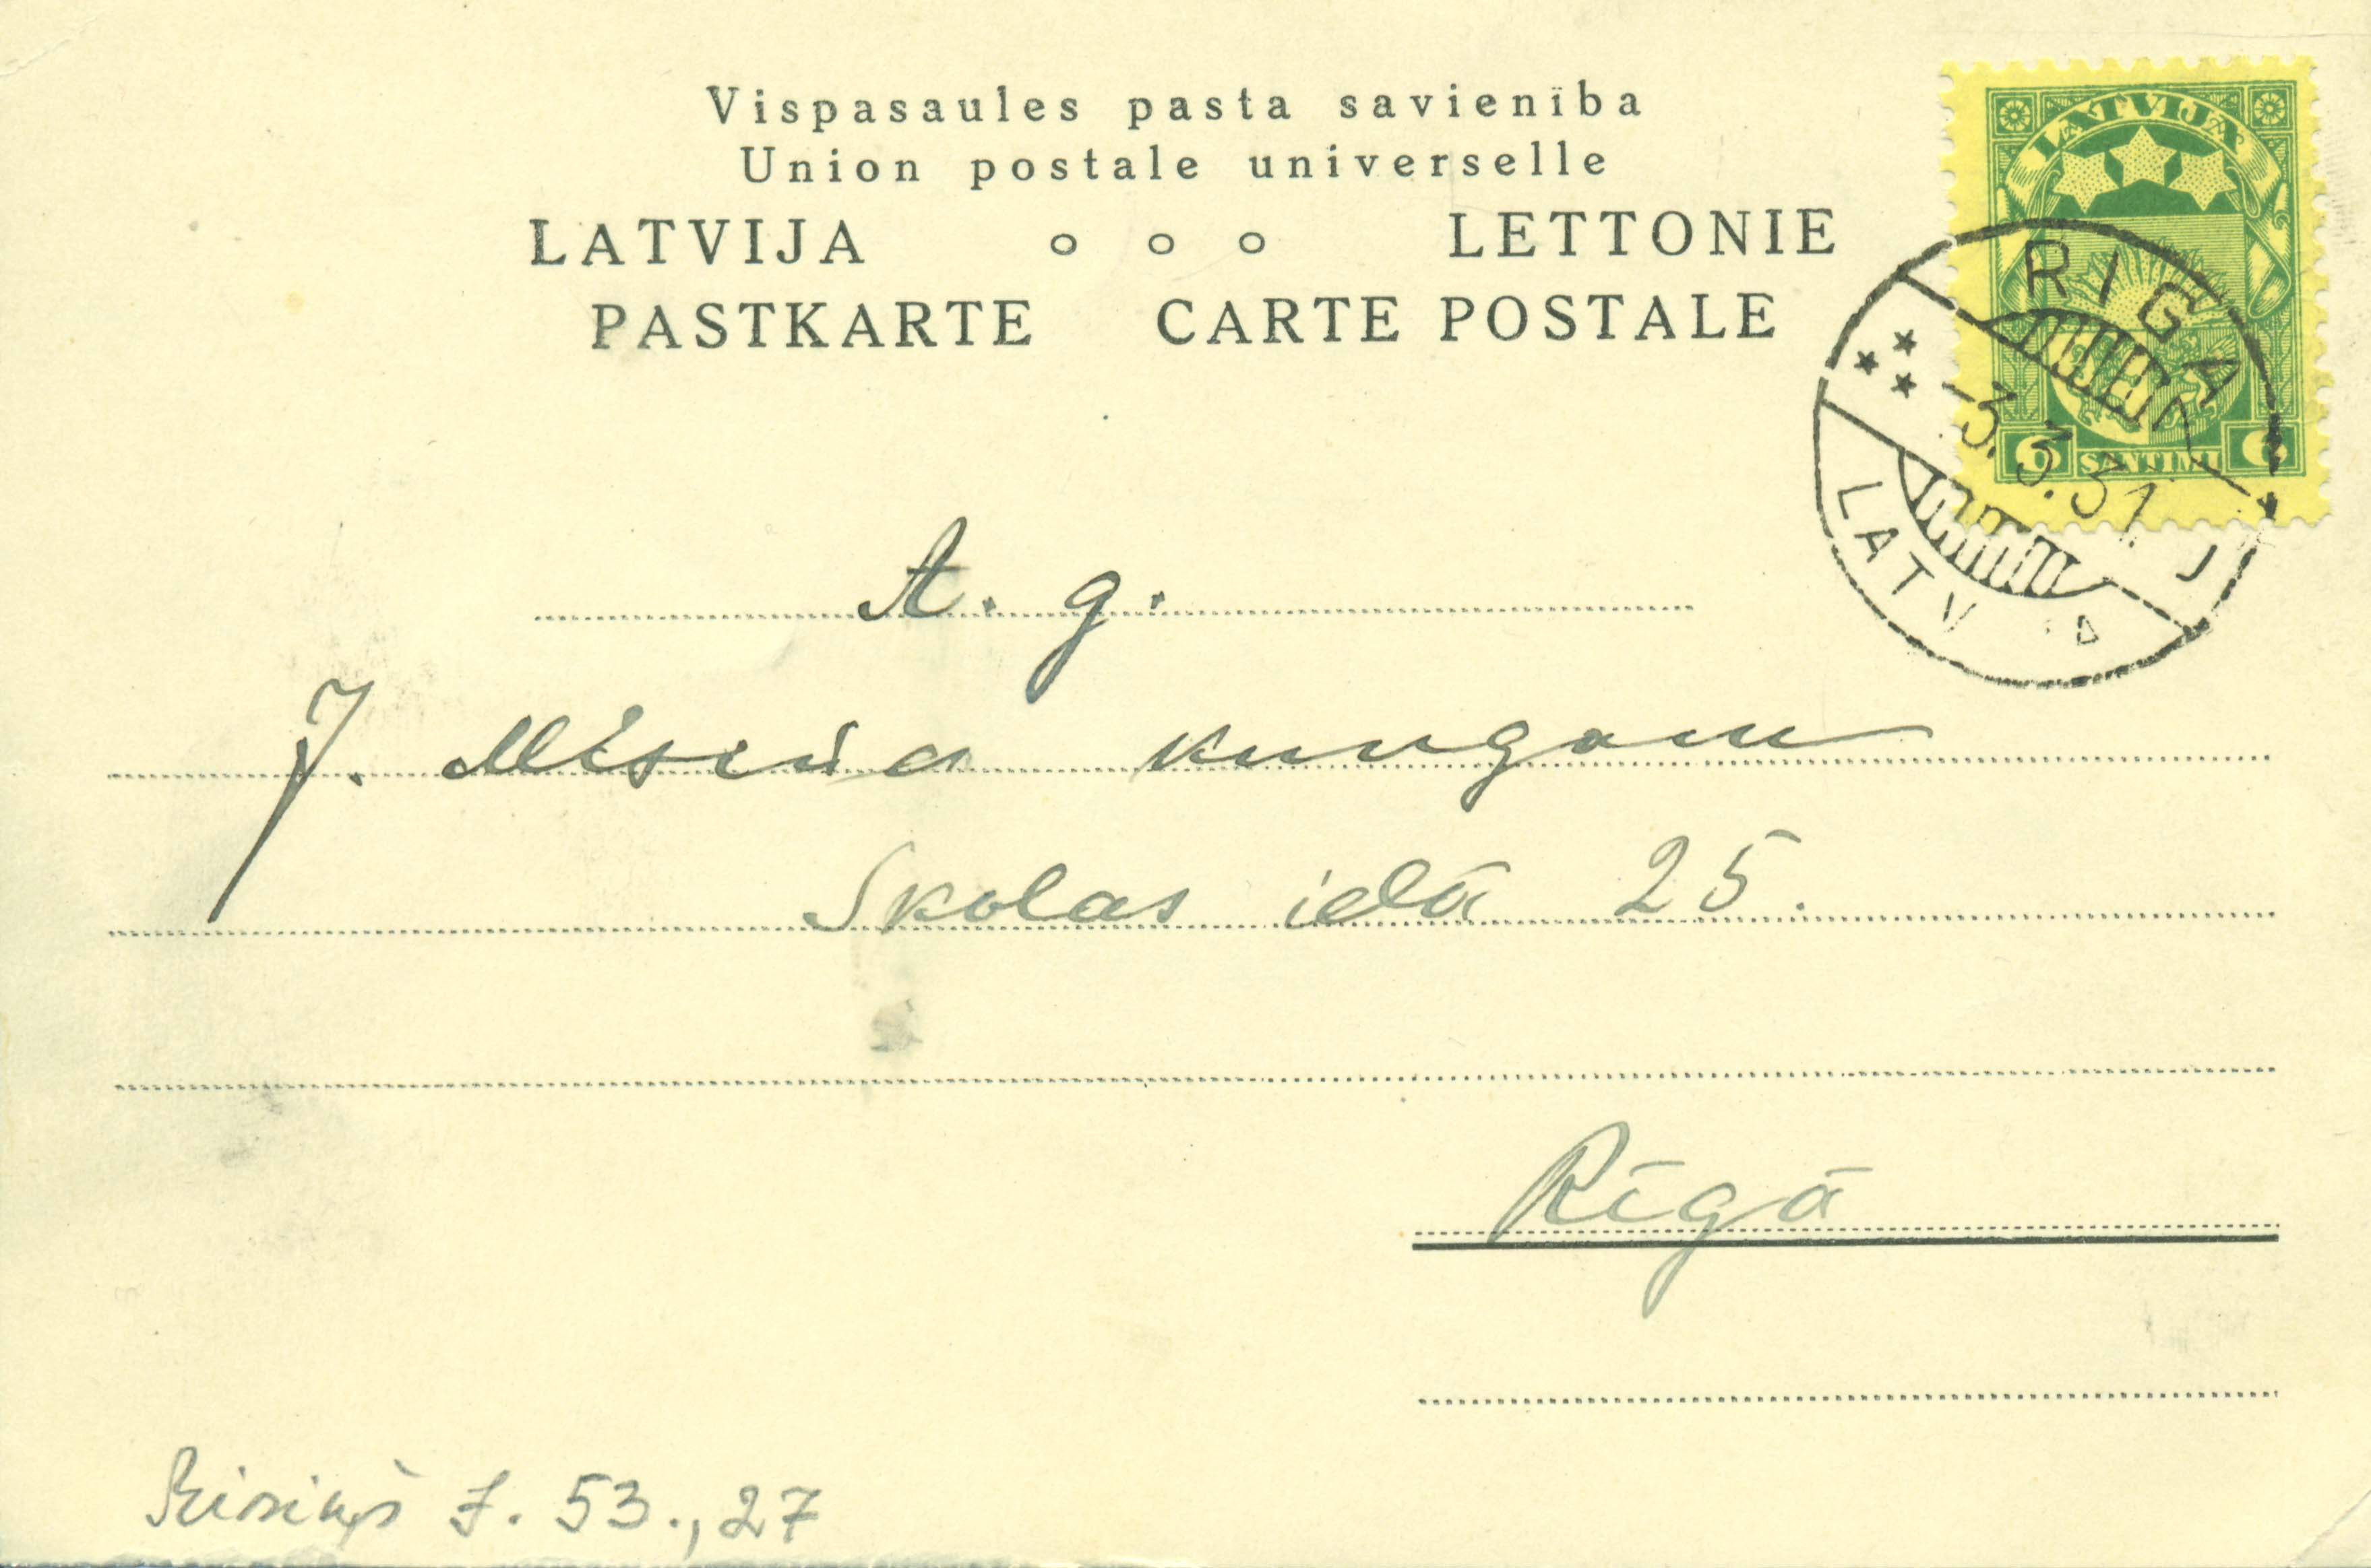 Vispasaules pasta savienība
Union postale universelle
LATVIJA o o o LETTONIE
PASTKARTE CARTE POSTALE
LATVIJA
6 SANTIMI 6
RIGA
-3.3.31.
J
LATV
A. g.
J. Misiņa kungam
Skolas ielā 25.
Rīgā
J. 53., 27